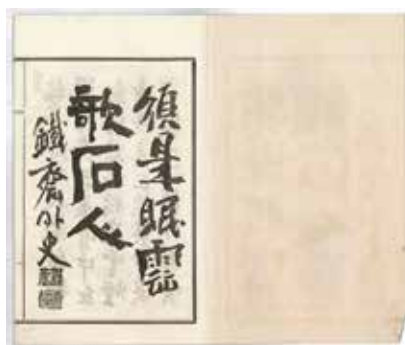 須是眠雲
歌石人
鐵齋外史